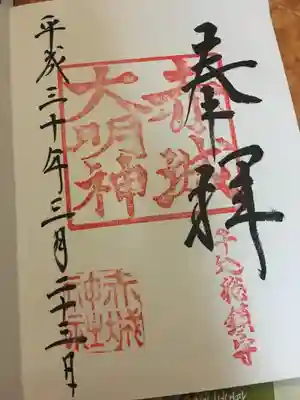 奉拝
牛込総鎮守
赤城
大明神
赤城
神社
平成三十年三月二十三日